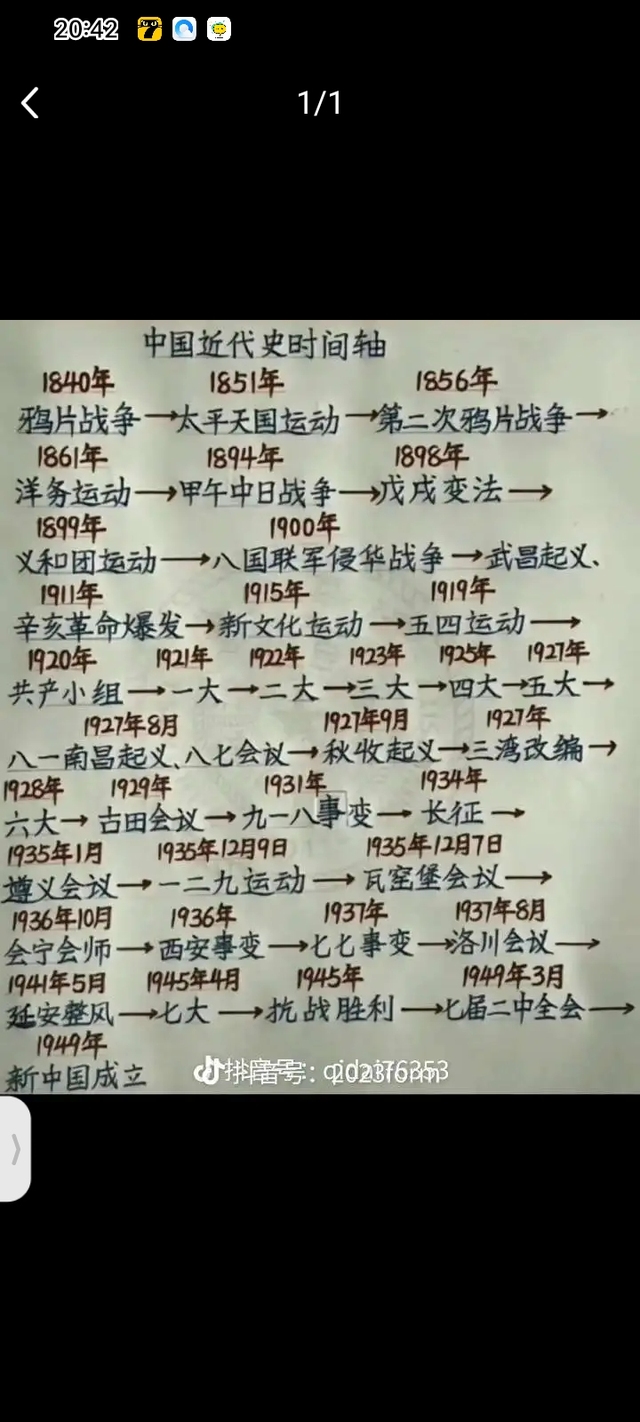 20:42
1/1
中国近代史时间轴
1840年 1851年 1856年
鸦片战争→太平天国运动→第二次鸦片战争→
1861年 1894年 1898年
洋务运动→甲午中日战争→戊戌变法→
1899年 1900年
义和团运动→八国联军侵华战争→武昌起义、
1911年 1915年 1919年
辛亥革命爆发→新文化运动→五四运动→
1920年 1921年 1922年 1923年 1925年 1927年
共产小组→一大→二大→三大→四大→五大→
1927年8月 1927年9月 1927年
八一南昌起义、八七会议→秋收起义→三湾改编→
1928年 1929年 1931年 1934年
六大→古田会议→九一八事变→长征→
1935年1月 1935年12月9日 1935年12月7日
遵义会议→一二九运动→瓦窑堡会议→
1936年10月 1936年 1937年 1937年8月
会宁会师→西安事变→七七事变→洛川会议→
1941年5月 1945年4月 1945年 1949年3月
延安整风→七大→抗战胜利→七届二中全会→
1949年
新中国成立
抖音号：